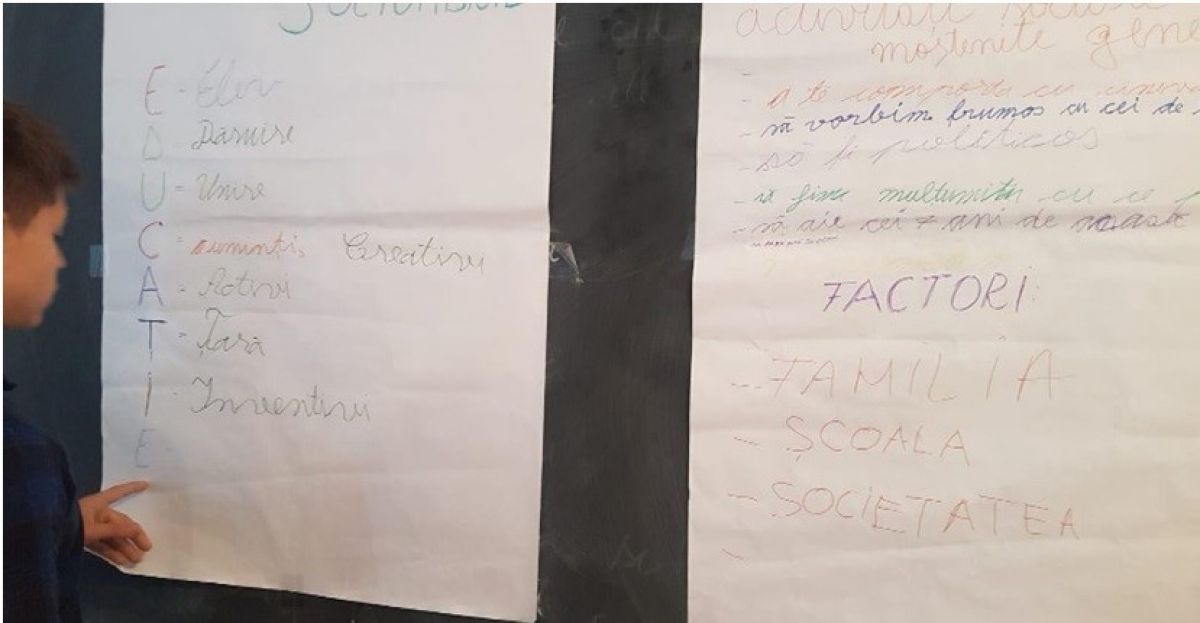 E - Elev
D Daruire
U = Unire
C = cuminți, Creativi
A = Activi
T = Țara
I - Inventivi
E -
activități
moștenite gene
- a te comporta cu cineva
- să vorbim frumos cu cei de
- să fi politicos
- să fim mulțumiți cu ce
- să aie cei 7 ani de acasă
FACTORI:
- FAMILIA
- ȘCOALA
- SOCIETATEA
-